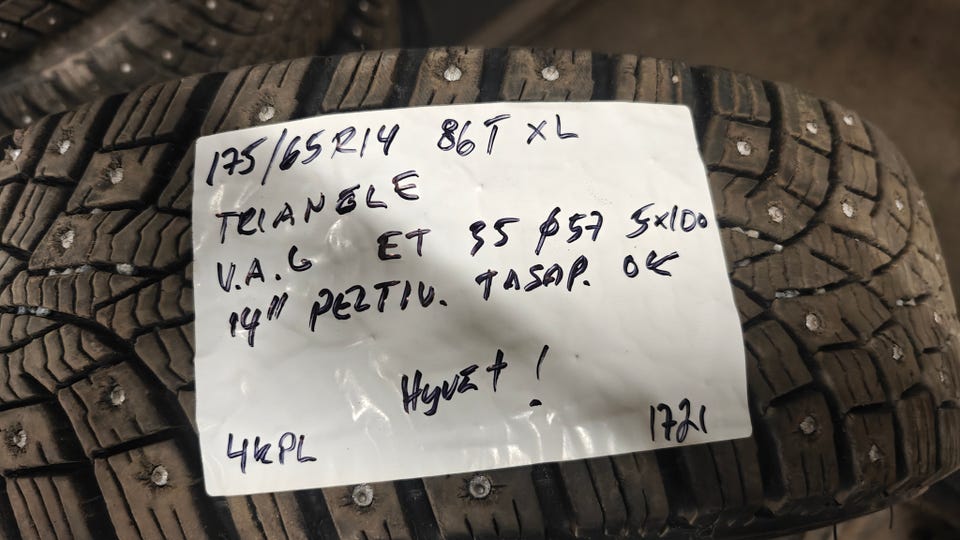 175/65R14 86T XL
TRIANGLE
V.A.G ET 35 ø57 5x100
14" PELTIV. TASAP. OK
Hyvet!
4KPL 1721